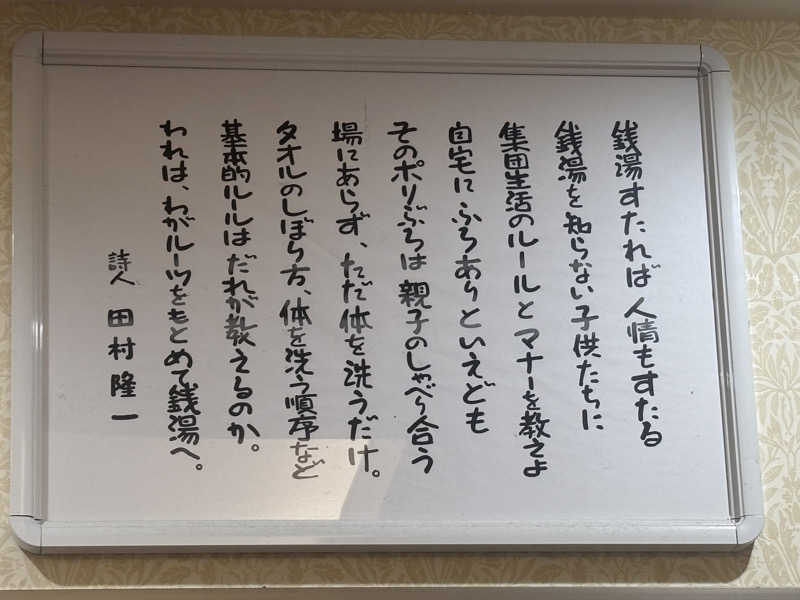 銭湯すたれば 人情もすたる
銭湯を知らない子供たちに
集団生活のルールとマナーを教えよ
自宅にふろありといえども
そのポリぶろは親子のしゃべり合う
場にあらず、ただ体を洗うだけ。
タオルのしぼり方、体を洗う順序など
基本的ルールはだれが教えるのか。
われは、わがルーツをもとめて銭湯へ。
詩人 田村隆一